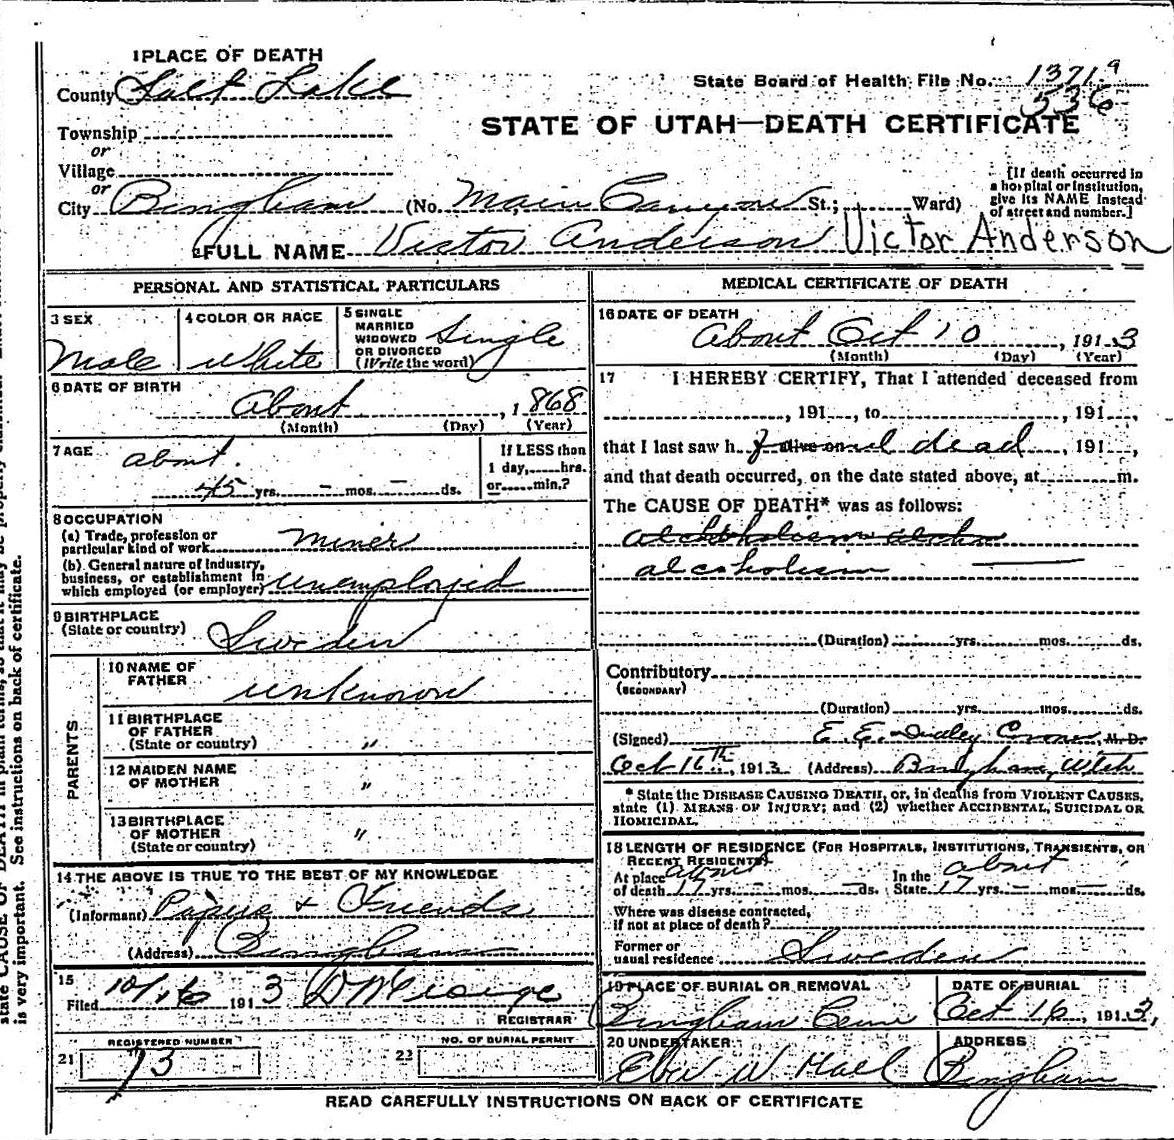 1 PLACE OF DEATH
County Salt Lake
State Board of Health File No. 1371 9
536
Township
or
STATE OF UTAH—DEATH CERTIFICATE
Village
or
City Bingham (No. Main Canyon St.; Ward)
[If death occurred in
a hospital or institution,
give its NAME instead
of street and number.]
2 FULL NAME Victor Anderson Victor Anderson
PERSONAL AND STATISTICAL PARTICULARS
3 SEX
Male
4 COLOR OR RACE
White
5 SINGLE
MARRIED
WIDOWED
OR DIVORCED
(Write the word)
Single
6 DATE OF BIRTH
About , 1868
(Month) (Day) (Year)
7 AGE
about
45 yrs. – mos. – ds.
If LESS than
1 day, hrs.
or min.?
8 OCCUPATION
(a) Trade, profession or
particular kind of work Miner
(b) General nature of industry,
business, or establishment in
which employed (or employer) unemployed
9 BIRTHPLACE
(State or country) Sweden
PARENTS
10 NAME OF
FATHER unknown
11 BIRTHPLACE
OF FATHER
(State or country) "
12 MAIDEN NAME
OF MOTHER "
13 BIRTHPLACE
OF MOTHER
(State or country) "
14 THE ABOVE IS TRUE TO THE BEST OF MY KNOWLEDGE
(Informant) & Friends
(Address) Bingham
15
Filed 10/16 1913
REGISTRAR
REGISTERED NUMBER
21 73
NO. OF BURIAL PERMIT
22
MEDICAL CERTIFICATE OF DEATH
16 DATE OF DEATH
About Oct 10 , 1913
(Month) (Day) (Year)
17 I HEREBY CERTIFY, That I attended deceased from
, 191 , to , 191 ,
that I last saw h alive on found dead , 191 ,
and that death occurred, on the date stated above, at m.
The CAUSE OF DEATH* was as follows:
alcoholism
(Duration) yrs. mos. ds.
Contributory
(SECONDARY)
(Duration) yrs. mos. ds.
(Signed) E. E. Dudley Coroner, M. D.
Oct 16th, 1913 (Address) Bingham, Utah
* State the DISEASE CAUSING DEATH, or, in deaths from VIOLENT CAUSES,
state (1) MEANS OF INJURY; and (2) whether ACCIDENTAL, SUICIDAL OR
HOMICIDAL.
18 LENGTH OF RESIDENCE (FOR HOSPITALS, INSTITUTIONS, TRANSIENTS, OR
RECENT RESIDENTS)
At place about In the about
of death 17 yrs. – mos. – ds. State 17 yrs. – mos. – ds.
Where was disease contracted,
if not at place of death?
Former or
usual residence Sweden
19 PLACE OF BURIAL OR REMOVAL
Bingham Cem
DATE OF BURIAL
Oct 16, 1913,
20 UNDERTAKER
W Hall
ADDRESS
Bingham
READ CAREFULLY INSTRUCTIONS ON BACK OF CERTIFICATE
is very important. See instructions on back of certificate.